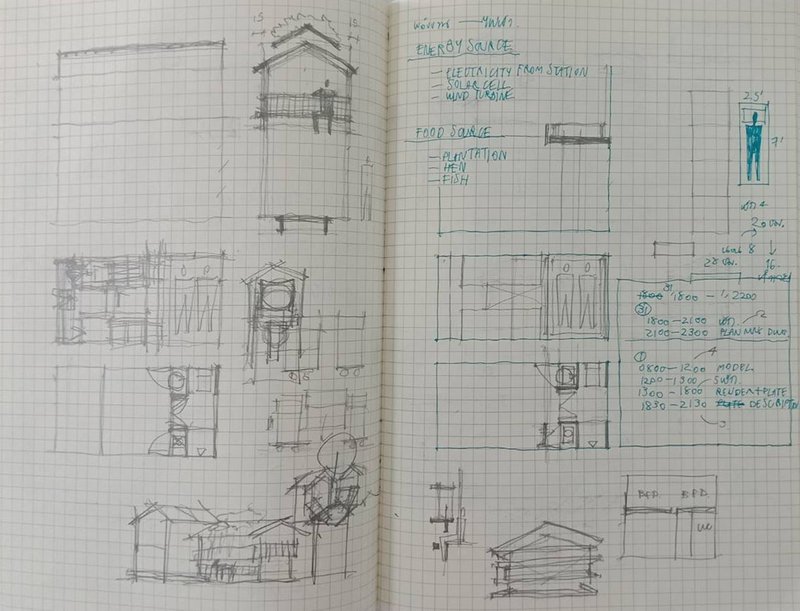 15
15
ENERGY SOURCE
— ELECTRICITY FROM STATION
— SOLAR CELL
— WIND TURBINE
FOOD SOURCE
— PLANTATION
— HEN
— FISH
2.5'
7'
4
20
8
28
16
31
1800 1800 – 2200
31
1800 – 2100
2
2100 – 2300 PLAN MAX DWG
1
4
0800 – 1200 MODEL
1200 – 1300
1300 – 1800 RENDER + PLATE
1830 – 2130 PLATE DESCRIPTION
BED. BED.
WC